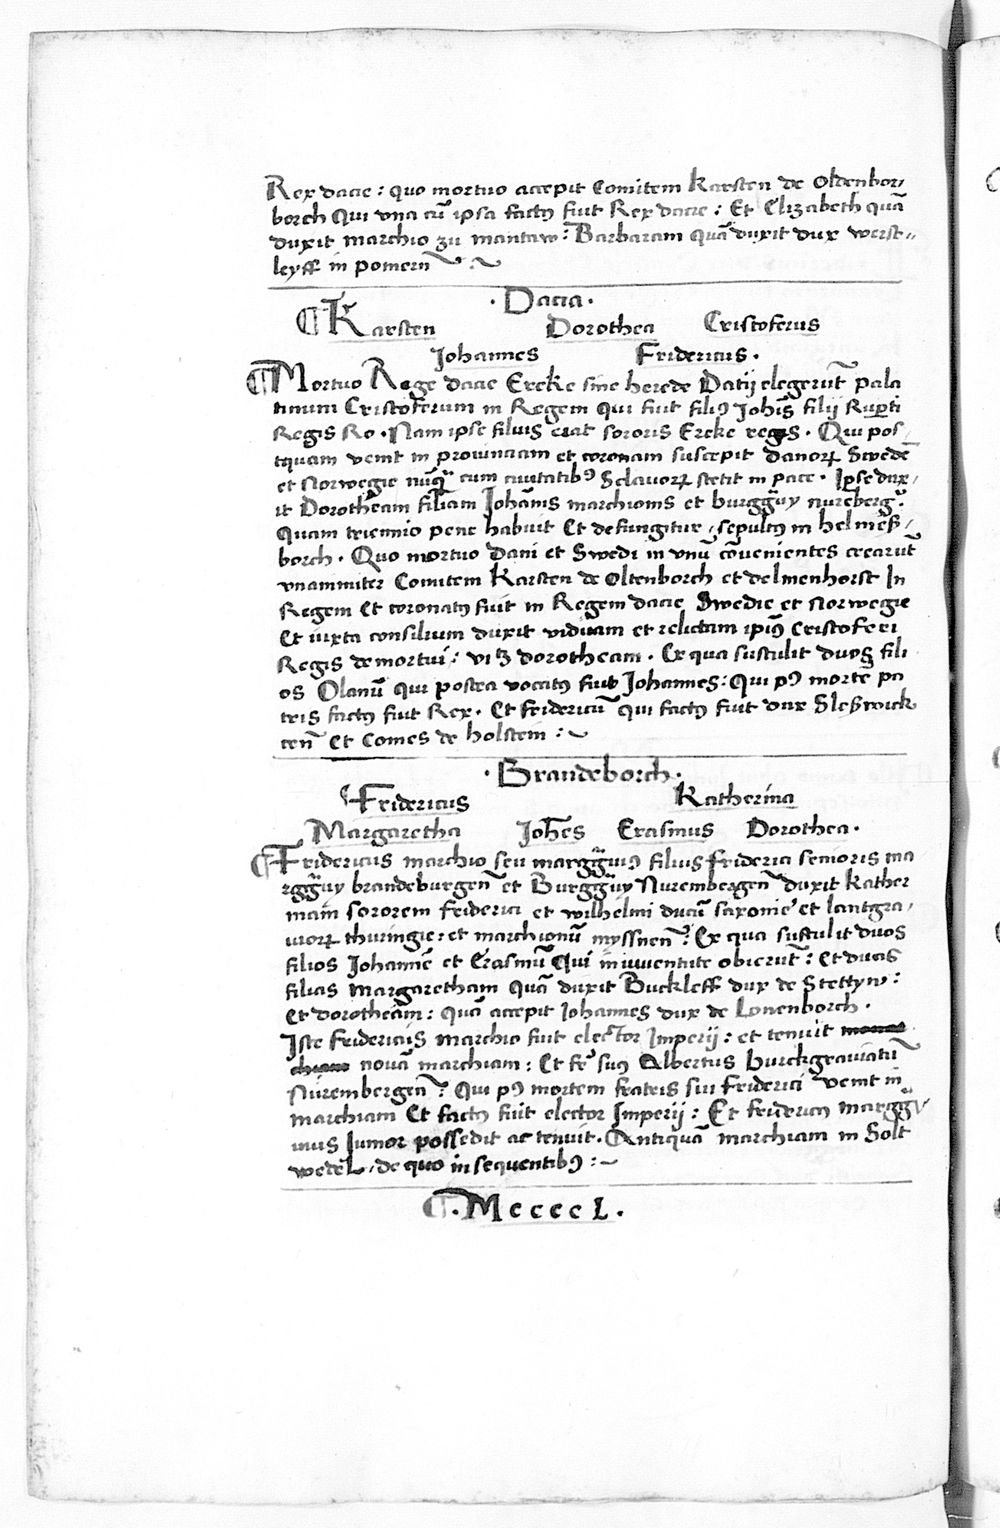 Rex dacie : quo mortuo accepit Comitem Karsten de Oldenbor,
borch Qui vna cū ipsa factꝰ fuit Rex dacie : Et Elizabeth quā
duxit marchio zu mantaw : Barbaram quā duxit dux werst,,
leyff in pomern̄
. Dacia .
¶ Karsten Dorothea Cristoferus
Johannes Fridericus .
¶ Mortuo Rege dacie Ercke sine herede Datij elegerūt pala
tinum Cristoferum in Regem qui fuit filiꝰ Joh̄is filij Rup̄ti
Regis Ro . Nam ipse filius erat sororis Ercke regis . Qui pos,
tquam venit in prouinciam et coronam suscepit danorꝝ Swede
et Norwegie nūq̄ cum ciuitatibꝰ Sclauorꝝ stetit in pace . Ipse dux,
it Dorotheam filiam Johānis marchionis et burgg̈uy nurēberg̈ .
Quam triennio pene habuit Et defungitur , sepultꝰ in helmeß,
borch . Quo mortuo Dani et Swedi in vnū cōuenientes crearūt
vnanimiter Comitem Karsten de Oltenborch et delmenhorst In
Regem Et coronatꝰ fuit in Regem dacie Swedie et Norwegie
Et iuxta consilium duxit viduam et relictam ipiꝰ Cristoferi
Regis demortui : vitꝫ dorotheam . Ex qua sustulit duos fili
os Olanū qui postea vocatꝰ fuit Johannes : Qui pꝰ mortē pa
tris factꝰ fuit Rex . Et fridericū qui factꝰ fuit dux Sleßwick
cen̄ Et Comes de holstein :~
. Brandeborch .
Fridericus Katherina
Margaretha Joh̄es Erasmus Dorothea .
¶ Fridericus marchio seu margg̈uiꝰ filius friderici senioris ma
rgg̈uy brandeburgen̄ et Burgg̈uy Nurembergen̄ duxit Kather
inam sororem friderici et wilhelmi ducū saxonie et lantgra,
uiorꝝ thuringie : et marchionū myssnen̄ : Ex qua sustulit duos
filios Johannē et Erasmū Qui in iuuentute obierūt : Et duas
filias Margaretham quā duxit Buckleff dux de Stettyn :
Et dorotheam : quā accepit Johannes dux de Louenborch .
Iste fridericus marchio fuit elector Imperij : et tenuit
nouā marchiam : Et fr̄ suꝰ Albertus burckgrauiatū
Nurembergen̄ : Qui pꝰ mortem fratris sui friderici venit in
marchiam Et factꝰ fuit elector Imperij : Et fridericꝰ margg̈
uius Junior possedit ac tenuit . Antiquā marchiam in Solt
wedel , de quo in sequentibꝰ :~
¶ . Mcccc L .